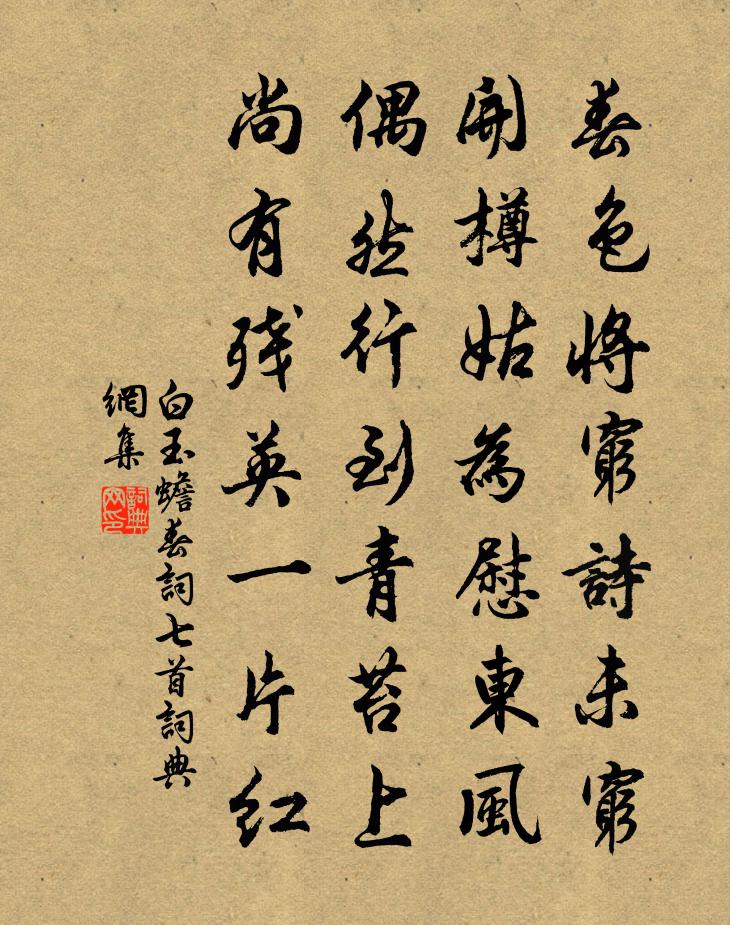 春色將窮詩未窮
開樽姑為慰東風
偶然行到青苔上
尚有殘英一片紅
白玉蟾春詞七首詞典
網集
詞典
网印